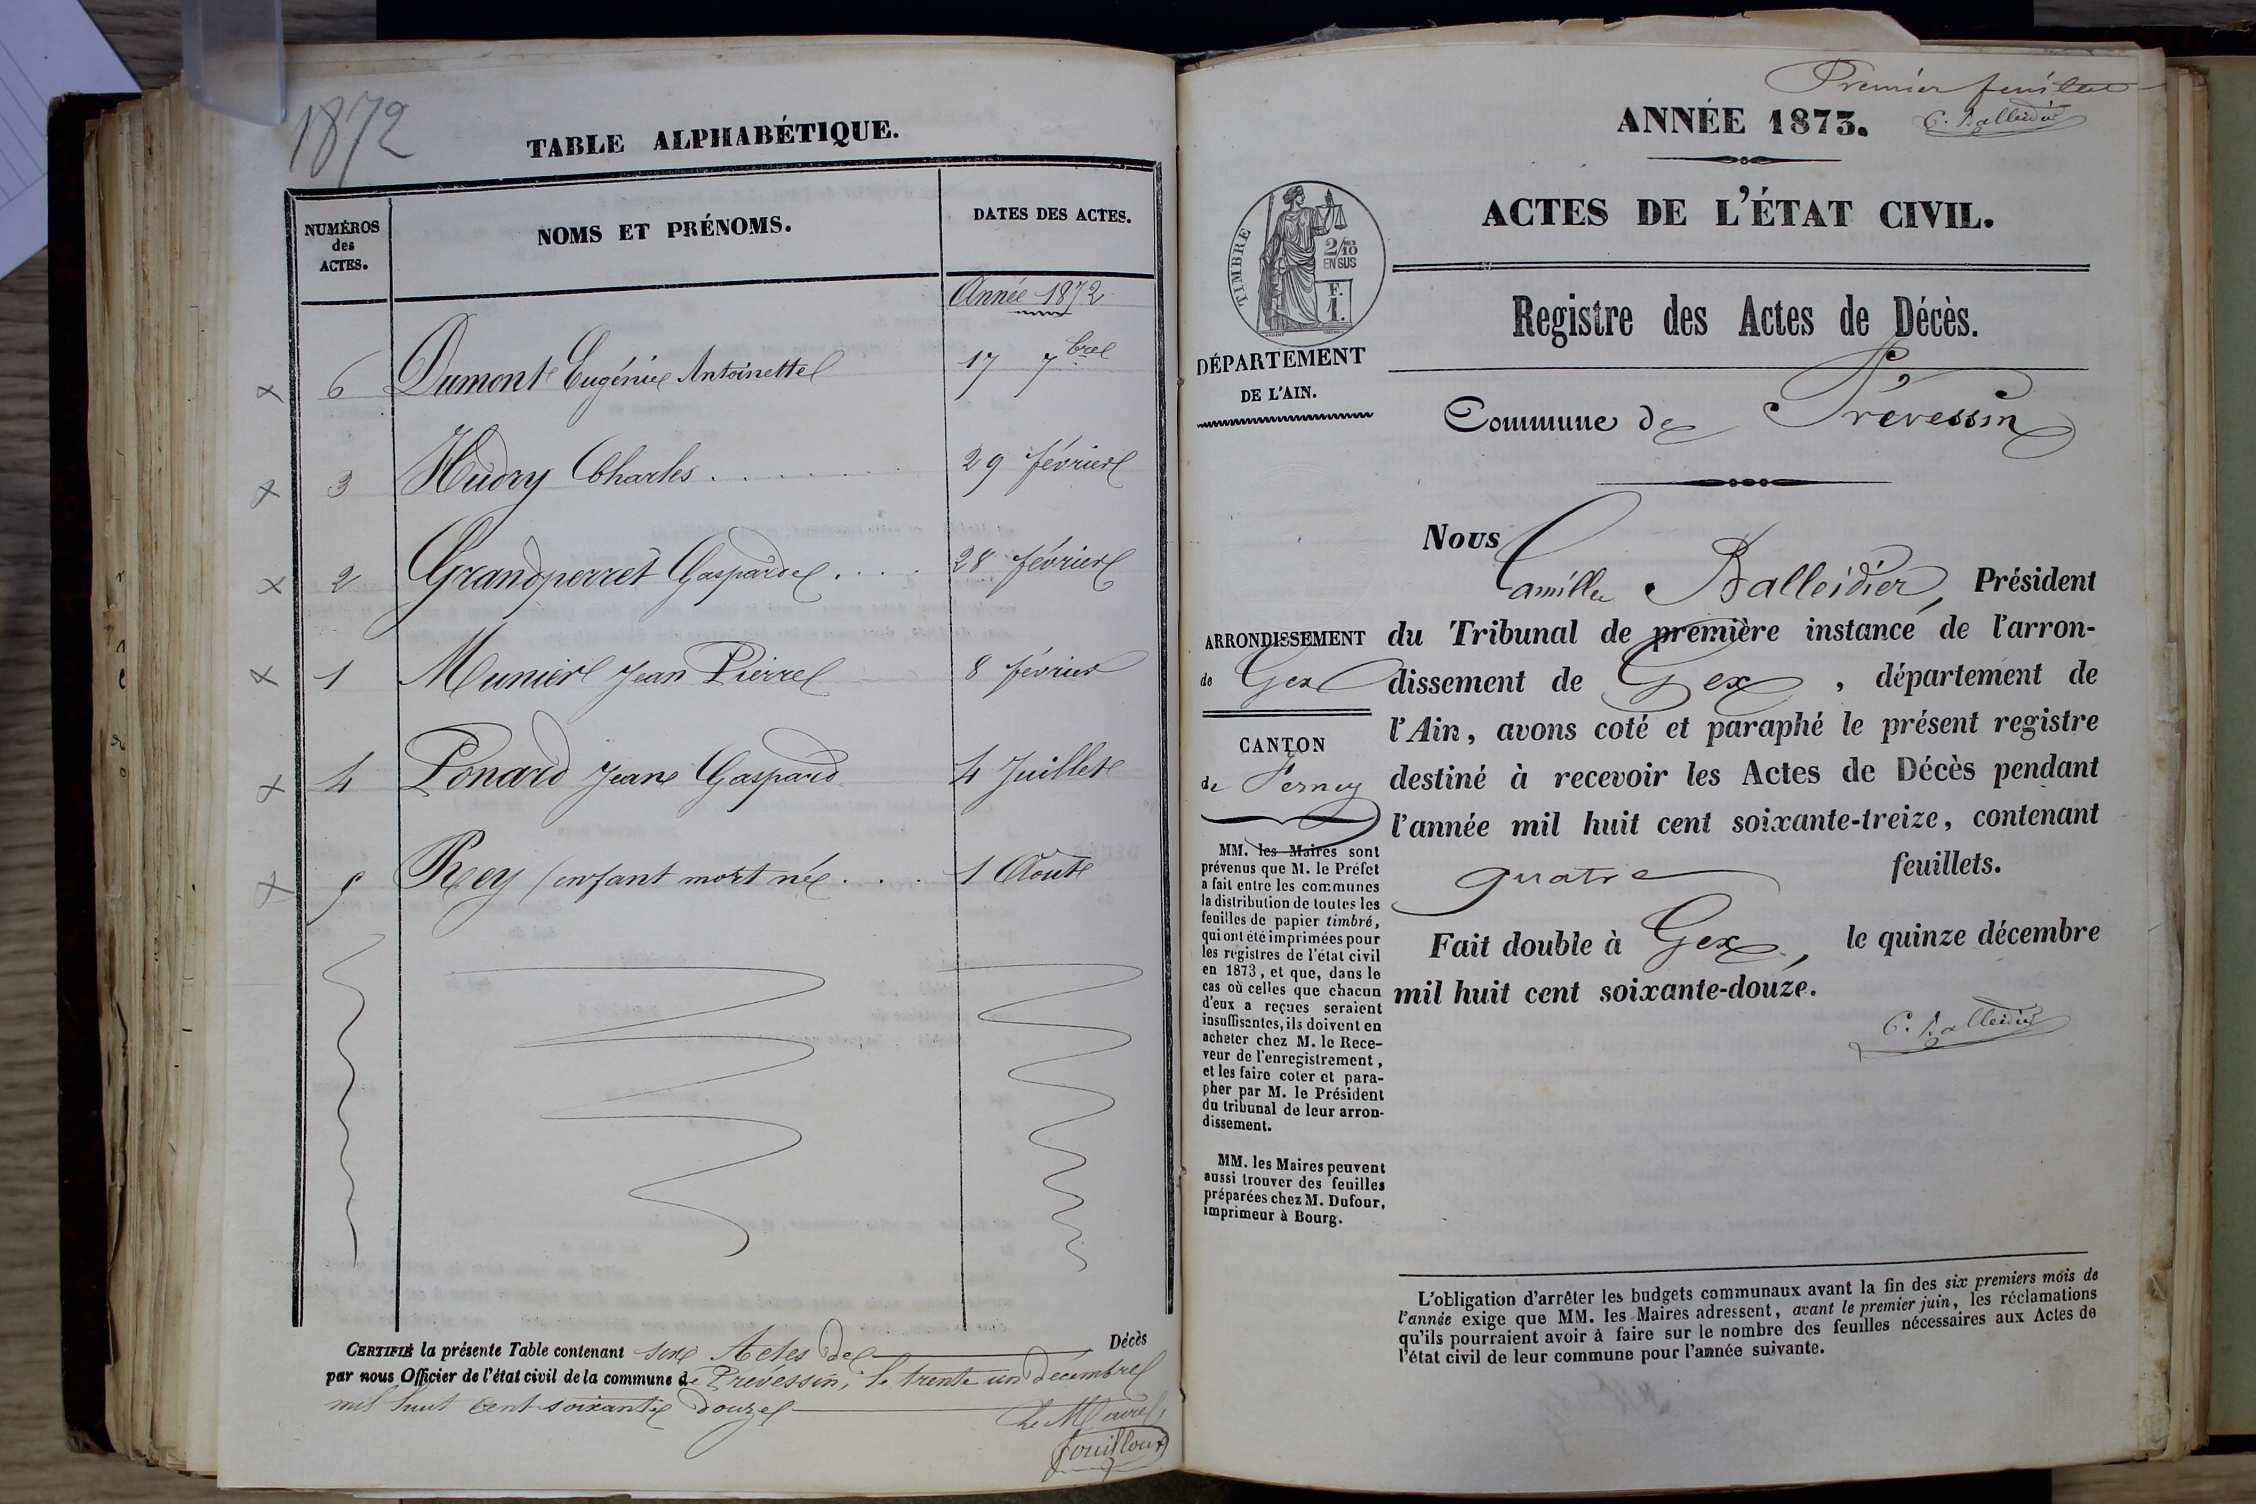 1872
TABLE ALPHABÉTIQUE.
NUMÉROS
des
ACTES.
NOMS ET PRÉNOMS.
DATES DES ACTES.
Année 1872
x 6 Dumont Eugénie Antoinette 17 7bre
x 3 Hudry Charles . . . . . . . 29 février
x 2 Grandperret Gaspard . . . . 28 février
x 1 Munier Jean Pierre 8 février
x 4 Ponard Jean Gaspard 4 Juillet
x 5 Rey (enfant mort né . . . . 1 Août
CERTIFIÉ la présente Table contenant six Actes de Décès
par nous Officier de l'état civil de la commune de Prévessin, le trente un décembre
mil huit cent soixante douze
Le Maire,
Fouilloux
Premier feuillet
C. Balleidier
ANNÉE 1873.
ACTES DE L'ÉTAT CIVIL.
TIMBRE
2/10
EN SUS
F.
1.
Registre des Actes de Décès.
DÉPARTEMENT
DE L'AIN.
Commune de Prévessin
Nous
Camille Balleidier, Président
du Tribunal de première instance de l'arron-
dissement de Gex, département de
l'Ain, avons coté et paraphé le présent registre
destiné à recevoir les Actes de Décès pendant
l'année mil huit cent soixante-treize, contenant
quatre feuillets.
Fait double à Gex, le quinze décembre
mil huit cent soixante-douze.
C. Balleidier
ARRONDISSEMENT
de Gex
CANTON
de Ferney
MM. les Maires sont
prévenus que M. le Préfet
a fait entre les communes
la distribution de toutes les
feuilles de papier timbré,
qui ont été imprimées pour
les registres de l'état civil
en 1873, et que, dans le
cas où celles que chacun
d'eux a reçues seraient
insuffisantes, ils doivent en
acheter chez M. le Rece-
veur de l'enregistrement,
et les faire coter et para-
pher par M. le Président
du tribunal de leur arron-
dissement.
MM. les Maires peuvent
aussi trouver des feuilles
préparées chez M. Dufour,
imprimeur à Bourg.
L'obligation d'arrêter les budgets communaux avant la fin des six premiers mois de
l'année exige que MM. les Maires adressent, avant le premier juin, les réclamations
qu'ils pourraient avoir à faire sur le nombre des feuilles nécessaires aux Actes de
l'état civil de leur commune pour l'année suivante.